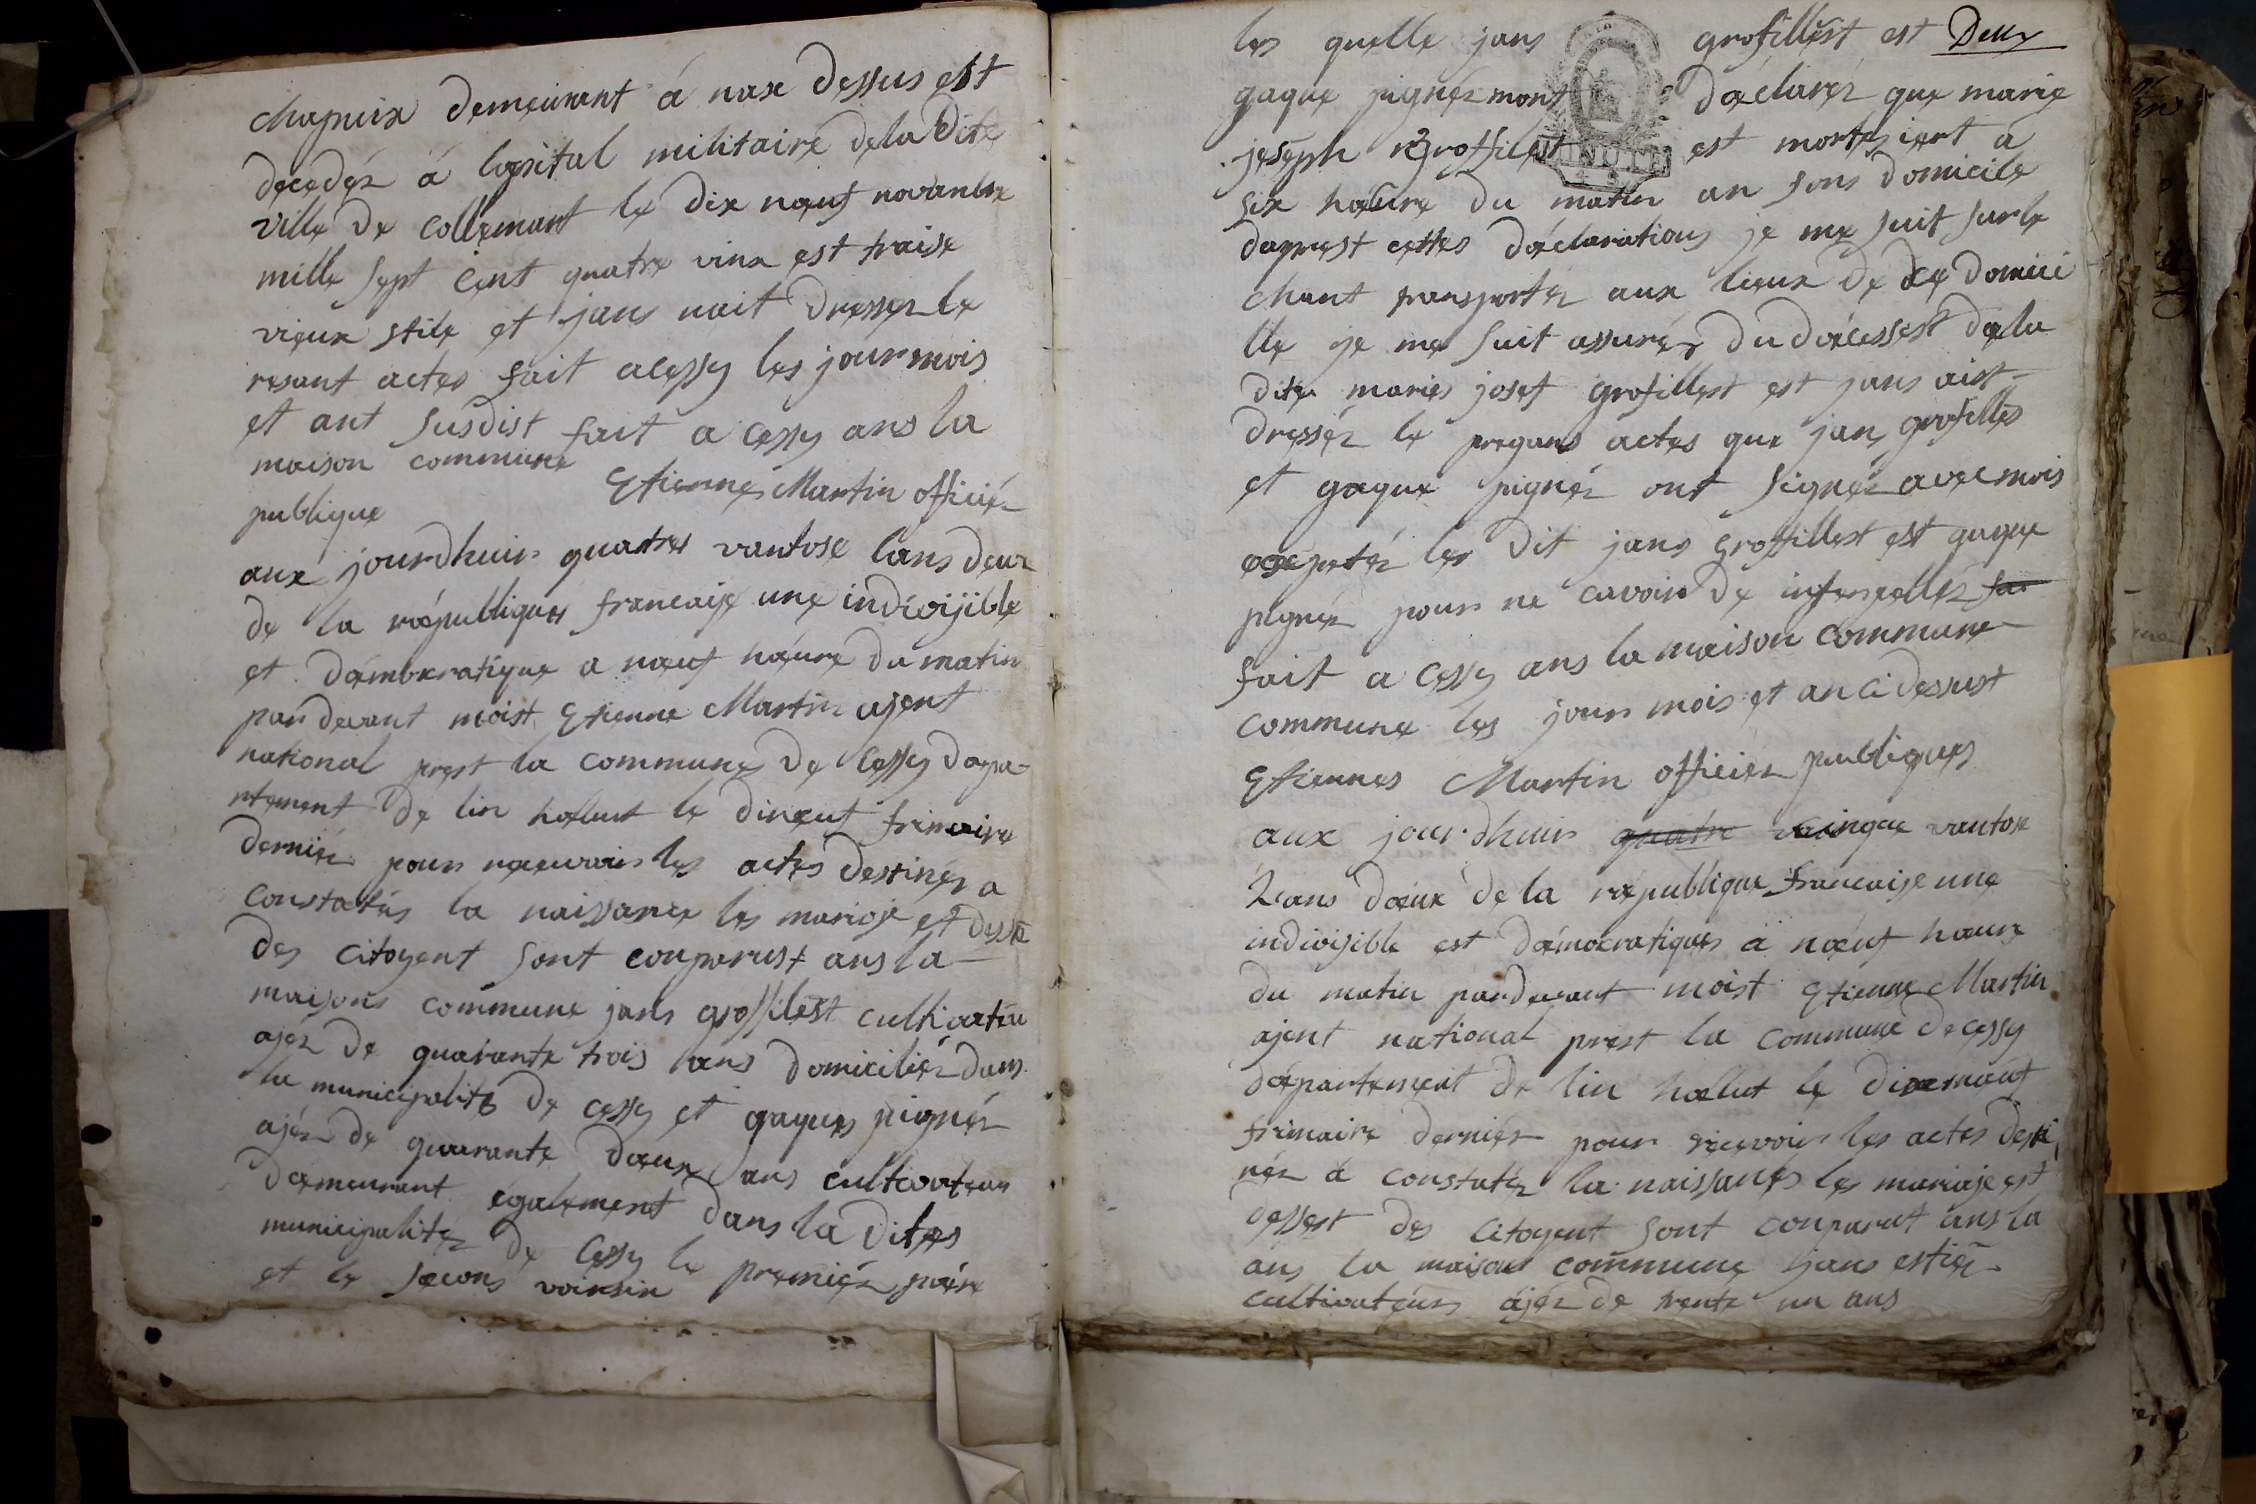 chapuix demeurant á nax dessus est
decedéz á lopsital militaire dela dite
ville de collemart le dix nœuf novanbre
mille sept cent quatre vinx est traise
vieux stile et jans nait dressez le
resant actes fait acessy les jour mois
et ant susdist fait a cessy ans la
maison commune
Etiennes Martin officiéz
publique
aux jourdhuir quatres vantose lans deux
de la républiques francaise une indivisible
et démocratique a nœuf hœure du matin
pardevant moist Etienne Martin ajent
national prest la communes de Cessy depa-
rtement de lin hœlust le dinœuf frimaire
derniér pour receuvoir les actes destinéz a
constatér la naissance les marioje et dessé
des citoyent sont conparust ans la
maisons commune jans groffilest cultivateu
ajéz de quarante trois ans domiciliéz dans
la municipalité de cessy et gaques pignéz
ajéz de quarante dœux ans cultivateur
demeurant egalement dans la dites
municipalitéz de Cessy le premiér pére
et le secons voinsin
les quelle jans grofillest est Deux
gaque pignéz mont déclaréz que marie
jeseph groffilest est mortes iert a
MINUTE
six hœure du matin an sons domicile
daprest cettes déclarations je me suit surle
chant transportéz aux lieux de ce domici
lle je me suit assuréz du décessest dela
dite maries josef grofillest est jans aist
dresséz le pregans actes que jans grofilles
et gaque pignéz ont signéz avec mois
exepetéz les dit jans groffillest est gaque
pignéz pour ne cavoir de interpelléz
fait a Cessy ans la maison commune
commune les jour mois et an ci dessust
Etiennes Martin officiez publiques
aux jour dhuir quatre cinque vantose
2 ans dœux de la république francaise une
indivisible est démocratiques á nœuf hœure
du matin pardevant moist Etienne Martin
ajent national prest la commune de cessy
département de lin hœlut le dixenœuf
frimaire derniér pour recevoir les actes desti
néz á constatéz la naissances les mariaje est
dessest des citoyent sont conparut ans la
ans la maison commune jans estiér
cultivateurs ajéz de trente un ans